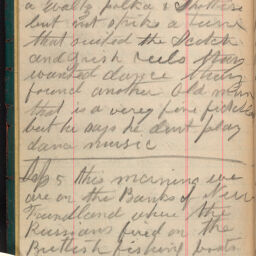 a waltz polka & Shottise
but not strike a tune
that suited the Scotch
and Irish reels they
wanted dance they
found another old man
that is a very fine fiddler
but he says he dont play
dance music
Sep 5 this morning we
are on the Banks of New
Foundland where the
Russians fired on the
Brittish fishing boats